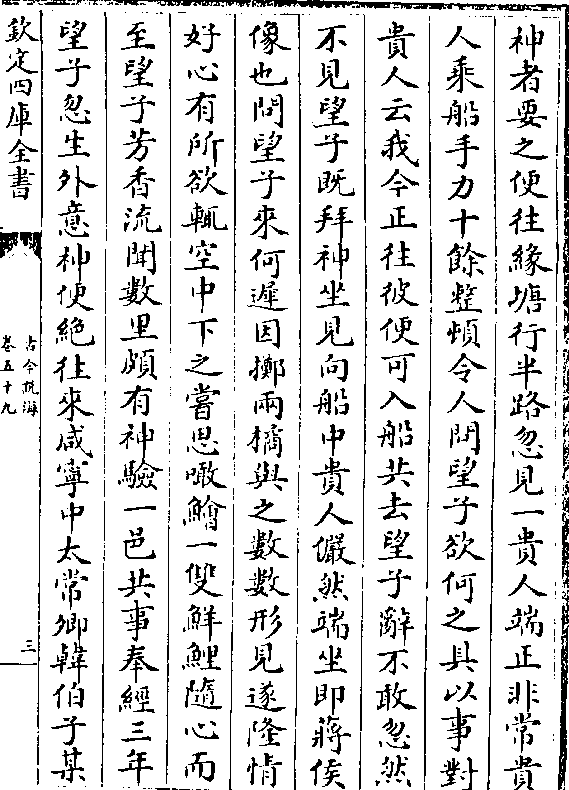 神者要之便往緣塘行半路忽見一貴人端正非常貴
人乘船手力十餘整頓令人問望子欲何之具以事對
貴人云我今正往彼便可入船共去望子辭不敢忽然
不見望子既拜神坐見向船中貴人儼然端坐即蔣侯
像也問望子來何遲因擲兩橘與之數數形見遂隆情
好心有所欲輒空中下之嘗思噉鱠一雙鮮鯉隨心而
至望子芳香流聞數里頗有神驗一邑共事奉經三年
望子忽生外意神便絶往來咸寧中太常卿韓伯子某
欽定四庫全書
古今說海
卷五十九
三